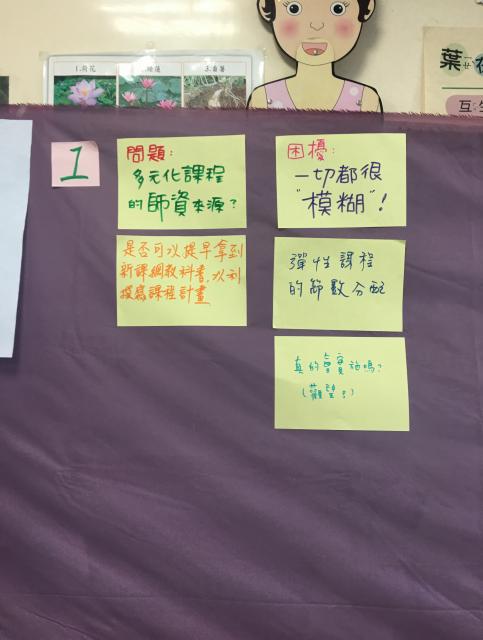 1.荷花
2.睡蓮
葉
互生
1
問題：
多元化課程
的師資來源？
困擾：
一切都很
"模糊"！
是否可以提早拿到
新課綱教科書，以利
撰寫課程計畫
彈性課程
的節數分配
真的會實施嗎？
（觀望？）